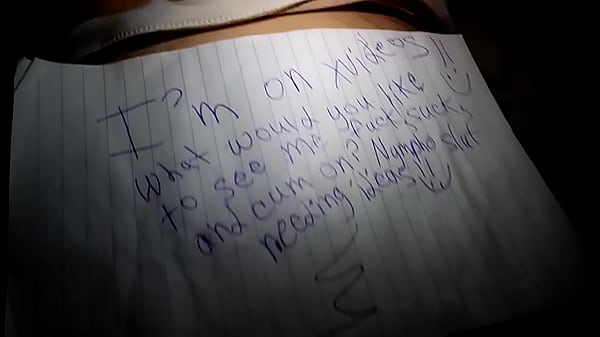 I'm on xvideos!!
What would you like
to see me fuck, suck,
and cum on? Nympho slut
needing ideas!!